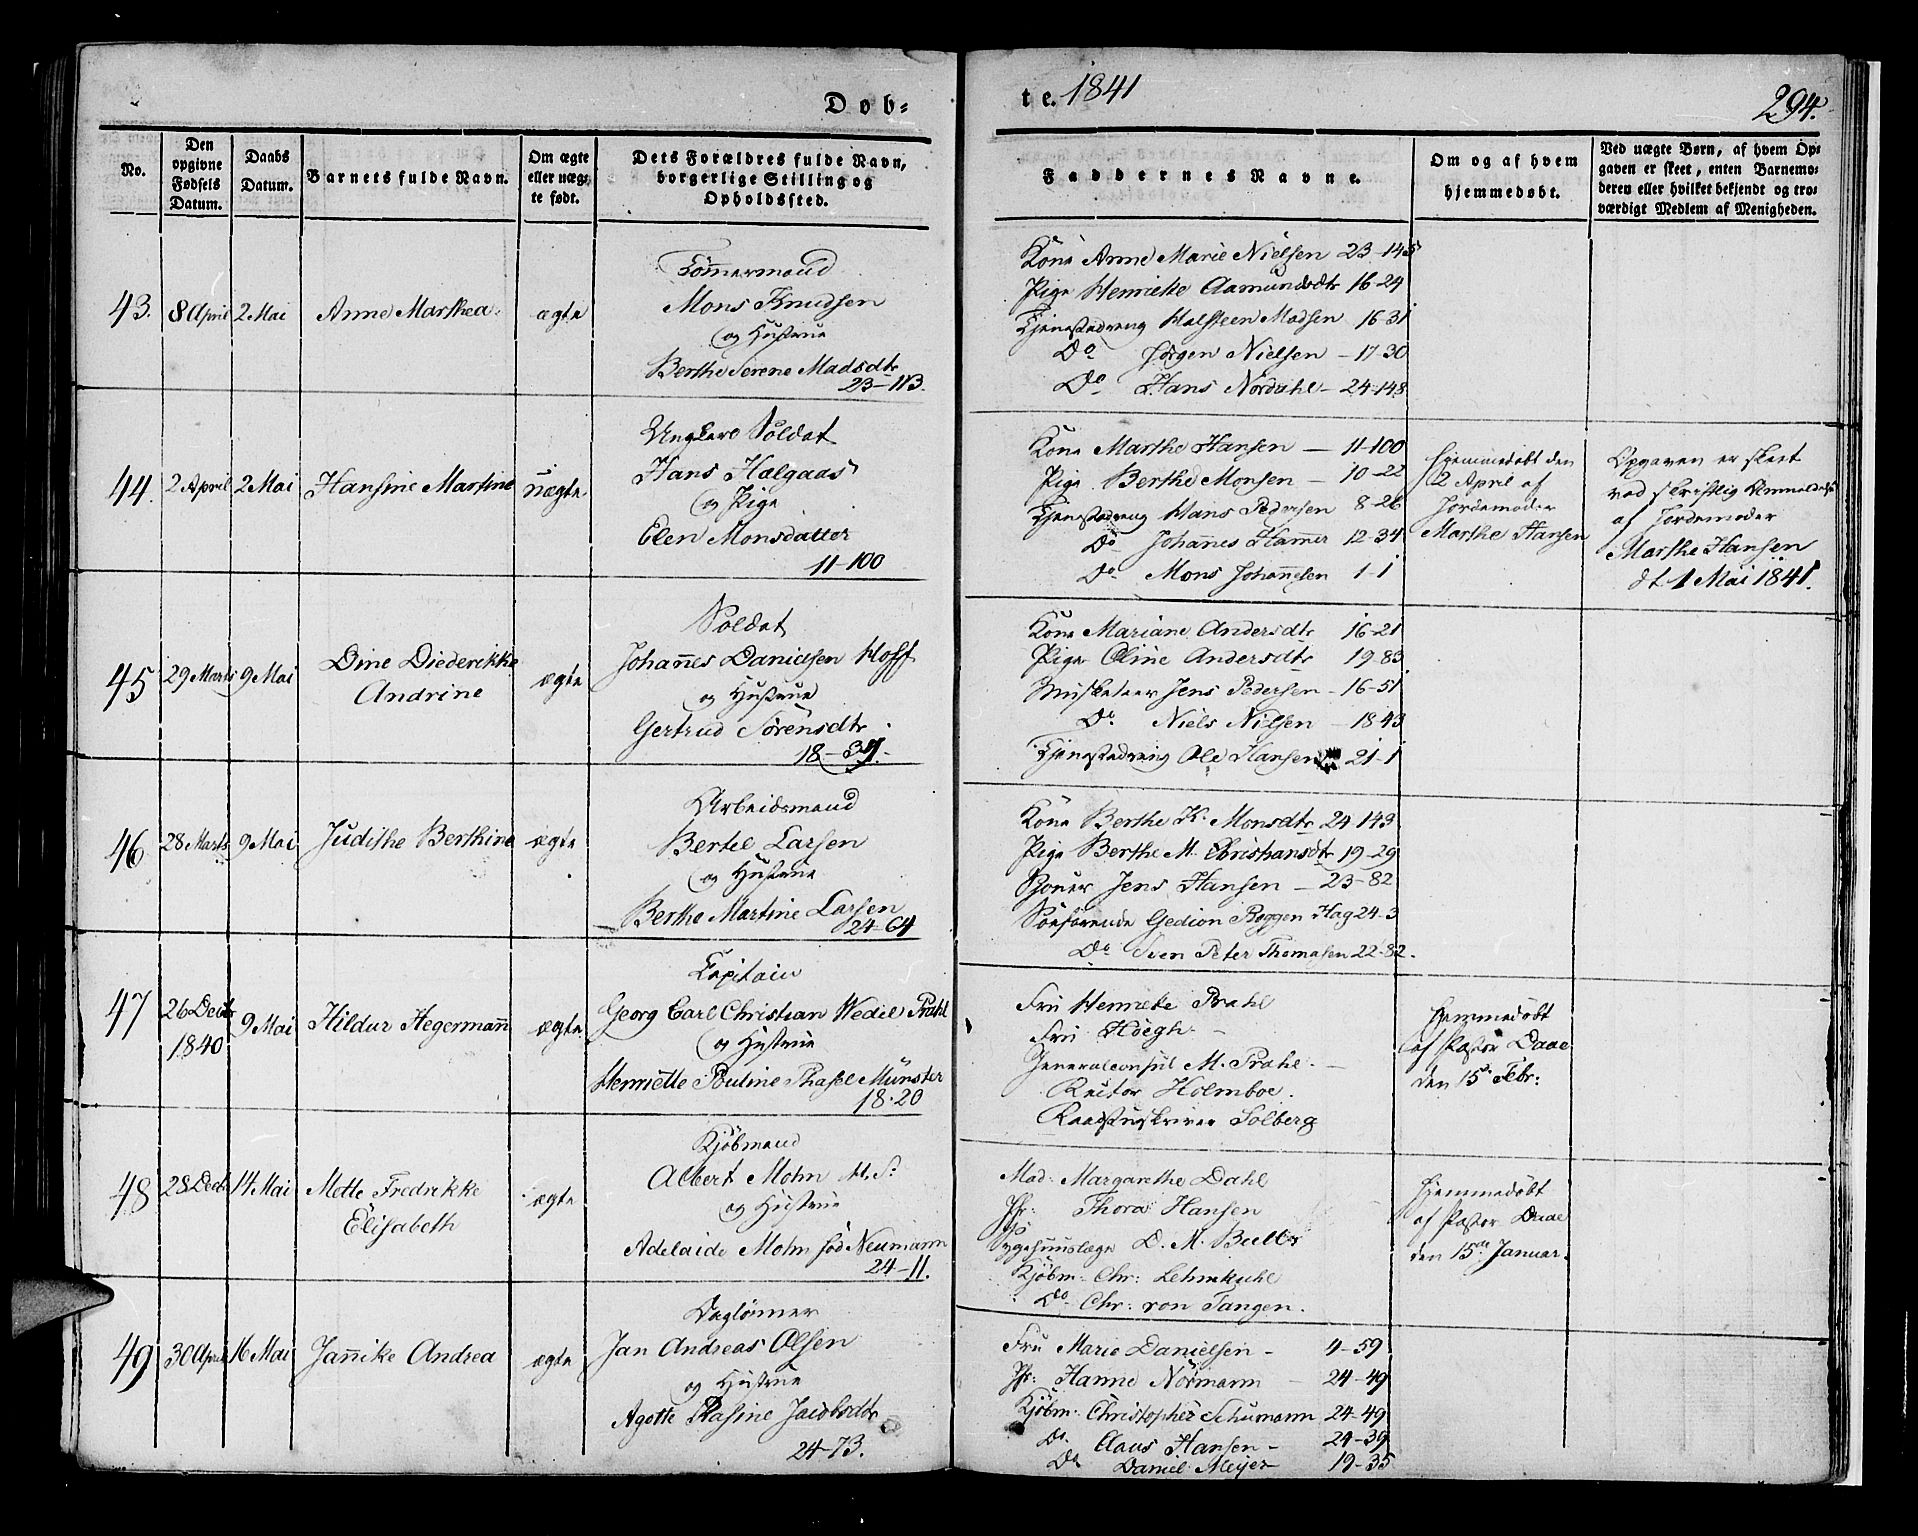 Døb-
te. 1841
294.
No.
Den opgivne Fødsels Datum.
Daabs Datum.
Barnets fulde Navn.
Om ægte eller uægte født.
Dets Forældres fulde Navn, borgerlige Stilling og Opholdssted.
Faddernes Navne.
Om og af hvem hjemmedøbt.
Ved uægte Børn, af hvem Opgaven er skeet, enten Barnemoderen eller hvilket bekjendt og troværdigt Medlem af Menigheden.
43. 8 April 2 Mai Anne Marthea. ægte
Tömmermand
Mons Knudsen
og Hustrue
Berthe Serene Madsdtr
23-113.
Kone Anne Marie Nielsen 23-145
Pige Henrikke Aamundsdtr 16-24
Tjenestedreng Halsteen Madsen 16-31
Do Jörgen Nielsen - 17-30
Do Hans Nordahl - 24-148
44. 2 April 2 Mai Hansine Martine uægte
Ungkarl Soldat
Hans Halgaas
og Pige
Elen Monsdatter
11-100
Kone Marthe Hansen - 11-100
Pige Berthe Monsen - 10-22
Tjenestedreng Hans Pedersen 8-26
Do Johannes Hammer 12-34
Do Mons Johannesen 1-1
Hjemmedöbt den
2 April af
Jordemoder
Marthe Hansen
Opgaven er skeet
ved skriftlig Anmeldelse
af Jordemoder
Marthe Hansen
dt 1 Mai 1841.
45 29 Marts 9 Mai Dine Diederikke
Andrine
ægte
Soldat
Johannes Danielsen Hoff
og Hustrue
Gertrud Sörensdtr
18-
Kone Mariane Andersdtr 16-21
Pige Oline Andersdtr 19-83
Musketeer Jens Pedersen - 16-51
Do Niels Nilsen - 18-43
Tjenestedreng Ole Hansen 21-1
46 28 Marts 9 Mai Judithe Berthine ægte
Arbeidsmand
Bertel Larsen
og Hustrue
Berthe Martine Larsen
24-64
Kone Berthe K. Monsdtr 24-143
Pige Berthe M. Christiansdtr 19-29
Jens Hansen - 23-82
Söefarende Gedion Roggen Hag 24-3
Do Sven Peter Thomasen 22-82.
47 26 Decbr
1840
9 Mai Hildur Hegermann ægte
Capitain
Georg Carl Christian Wedel Prahl
og Hustrue
Henriette Pouline Thasel Münster
18-20
Fru Henriete Prahl
Fru Höegh. -
Generalconsul M. Prahl. -
Rector Holmboe.
Raadstueskriver Solberg
Hjemmedöbt
af Pastor Daae
den 15de Febr:
48 28 Decb 14 Mai Mette Fredrikke
Elisabeth
ægte
Kjöbmand
Albert Mohn M. S.
og Hustrue
Adelaide Mohn fød Neumann
24-11.
Mad. Margarethe Dahl
Jfr: Thora Hansen
D. M.
Kjöbm: Chr: Lehmkuhl
Do Chr: von Tangen.
Hjemmedöbt
af Pastor Daae
den 15de Januar.
49 30 April 16 Mai Jannike Andrea ægte
Daglönner
Jan Andreas Olsen
og Hustrue
Agotte Rasine Jacobsdtr
24-73.
Fru Marie Danielsen - 4-59
Jfr: Hanne Nörmann - 24-49
Kjöbm. Christopher Schumann 24-49
Do. Claus Hansen - 24-39
Do Daniel Meyer 19-35